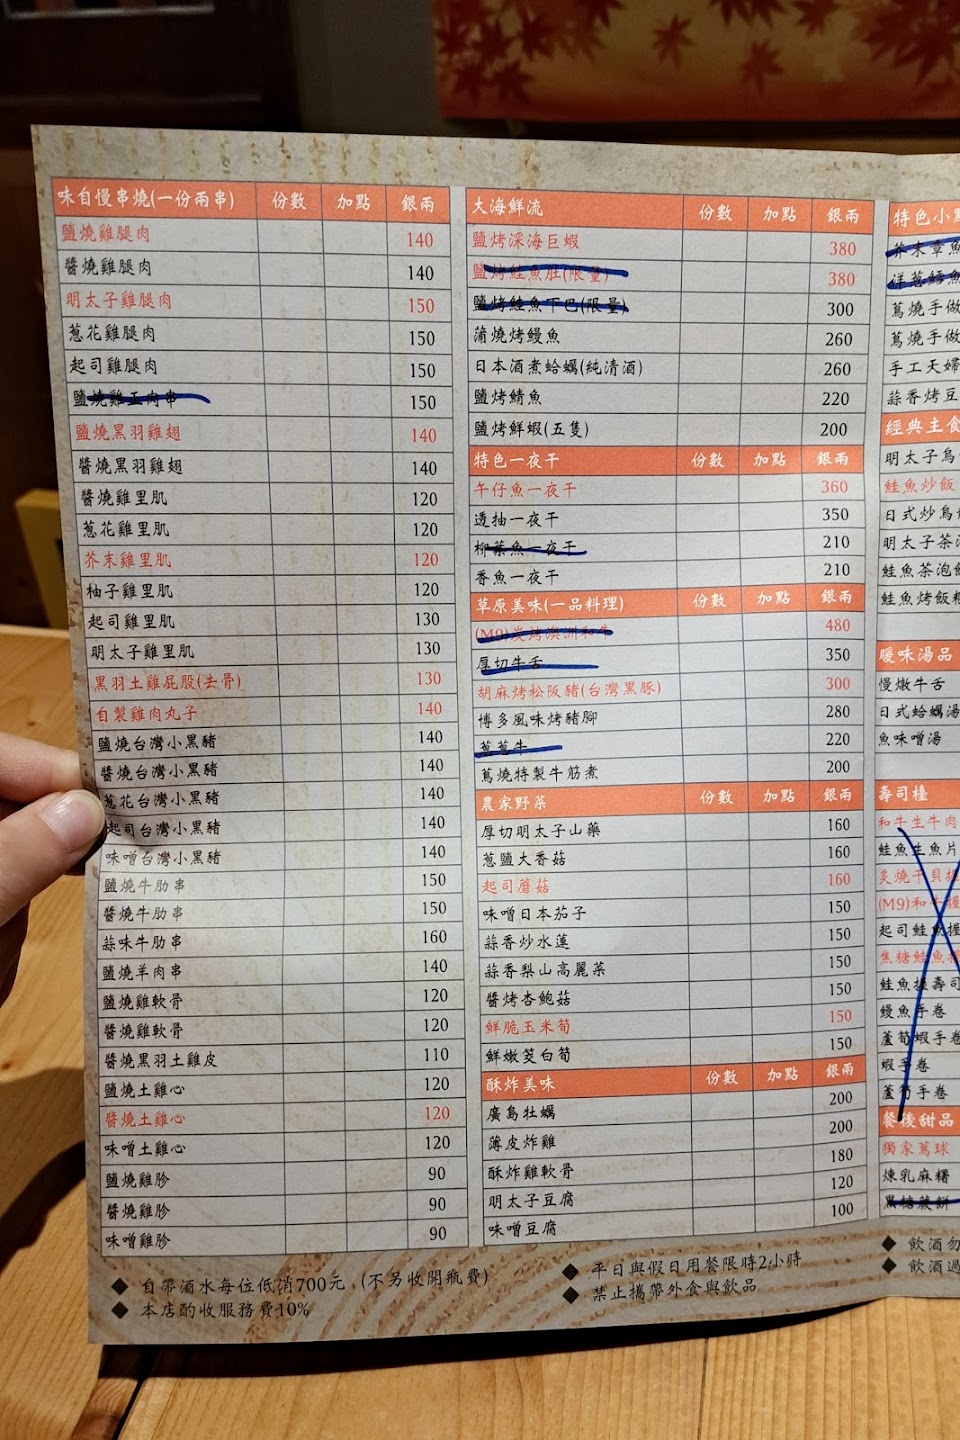 味自慢串燒(一份兩串) 份數 加點 銀兩
鹽燒雞腿肉 140
醬燒雞腿肉 140
明太子雞腿肉 150
蔥花雞腿肉 150
起司雞腿肉 150
鹽燒雞正肉串 150
鹽燒黑羽雞翅 140
醬燒黑羽雞翅 140
醬燒雞里肌 120
蔥花雞里肌 120
芥末雞里肌 120
柚子雞里肌 120
起司雞里肌 130
明太子雞里肌 130
黑羽土雞屁股(去骨) 130
自製雞肉丸子 140
鹽燒台灣小黑豬 140
醬燒台灣小黑豬 140
蔥花台灣小黑豬 140
起司台灣小黑豬 140
味噌台灣小黑豬 140
鹽燒牛肋串 150
醬燒牛肋串 150
蒜味牛肋串 160
鹽燒羊肉串 140
鹽燒雞軟骨 120
醬燒雞軟骨 120
醬燒黑羽土雞皮 110
鹽燒土雞心 120
醬燒土雞心 120
味噌土雞心 120
鹽燒雞胗 90
醬燒雞胗 90
味噌雞胗 90
大海鮮流 份數 加點 銀兩
鹽烤深海巨蝦 380
鹽烤鮭魚肚(限量) 380
鹽烤鮭魚下巴(限量) 300
蒲燒烤鰻魚 260
日本酒煮蛤蠣(純清酒) 260
鹽烤鯖魚 220
鹽烤鮮蝦(五隻) 200
特色一夜干 份數 加點 銀兩
午仔魚一夜干 360
透抽一夜干 350
柳葉魚一夜干 210
香魚一夜干 210
草原美味(一品料理) 份數 加點 銀兩
(M9)炭烤澳洲和牛 480
厚切牛舌 350
胡麻烤松阪豬(台灣黑豚) 300
博多風味烤豬腳 280
蔥蔥牛 220
蔦燒特製牛筋煮 200
農家野菜 份數 加點 銀兩
厚切明太子山藥 160
蔥鹽大香菇 160
起司蘑菇 160
味噌日本茄子 150
蒜香炒水蓮 150
蒜香梨山高麗菜 150
醬烤杏鮑菇 150
鮮脆玉米筍 150
鮮嫩筊白筍 150
酥炸美味 份數 加點 銀兩
廣島牡蠣 200
薄皮炸雞 200
酥炸雞軟骨 180
明太子豆腐 120
味噌豆腐 100
特色小
芥末章魚
洋蔥鱈魚
蔦燒手做
蔦燒手做
手工天婦
蒜香烤豆
經典主食
明太子烏
鮭魚炒飯
日式炒烏
明太子茶
鮭魚茶泡飯
鮭魚烤飯
暖味湯品
慢燉牛舌
日式蛤蠣湯
魚味噌湯
壽司檯
和牛生牛肉
鮭魚生魚片
炙燒干貝握
(M9)和牛握
起司鮭魚握
焦糖鮭魚握
鮭魚握壽司
鰻魚手卷
蘆筍蝦手卷
蝦手卷
蘆筍手卷
餐後甜品
獨家蔦球
煉乳麻糬
黑糖蕨餅
◆ 自帶酒水每位低消700元，(不另收開瓶費)
◆ 本店酌收服務費10%
◆ 平日與假日用餐限時2小時
◆ 禁止攜帶外食與飲品
◆ 飲酒勿
◆ 飲酒過